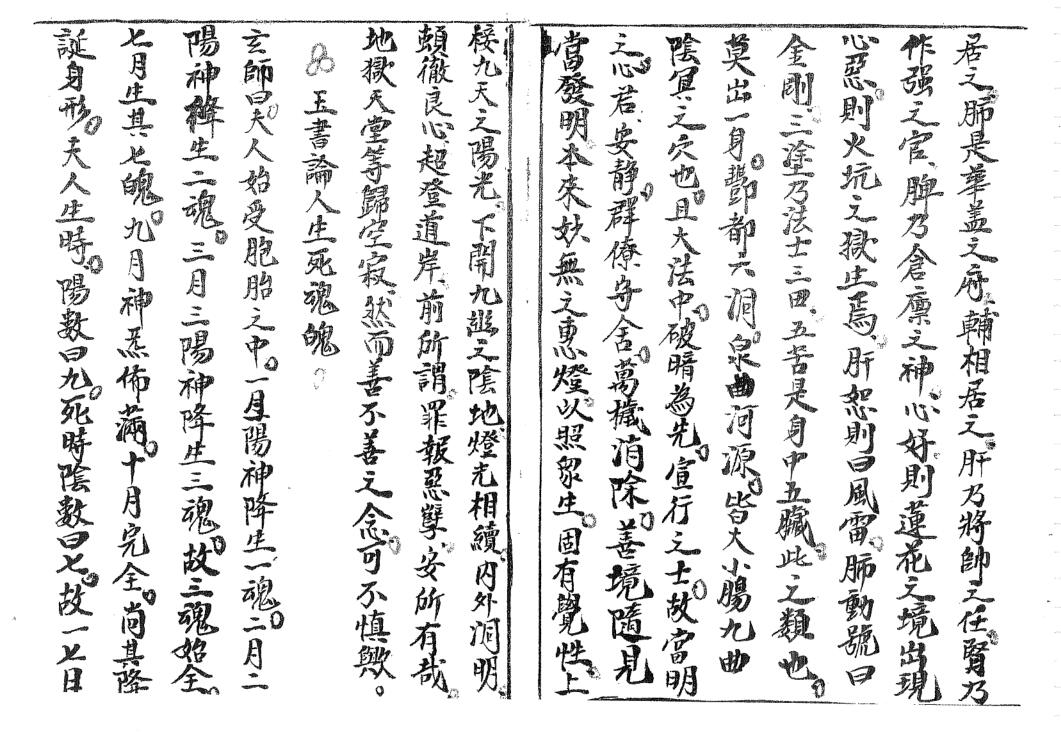 居之。肺是華盖之府、輔相居之。肝乃將帥之任。腎乃
作强之官、脾乃倉廪之神。心好則蓮花之境出現
心惡。則火坑之獄生焉。肝怒則曰風雷。肺動號曰
金剛、三塗乃法士三田、五苦是身中五臟。此之類也。
莫出一身。酆都六洞。泉曲河源。皆大小腸九曲
陰冥之穴也。且大法中。破暗為先。宣行之士。故當明
之心君、安静。群僚、守舍。萬穢消除。善境隨見
當發明本來妙無之惠燈。以照衆生。固有覺性。上
接九天之陽光。下開九逰之陰地。燈光相續。内外洞明。
頓徹良心。超登道岸、前所謂罪報惡孽、安所有哉。
地獄天堂等歸空寂、然而善不善之念。可不慎歟。
玉書論人生死魂魄
玄師曰。夫人始受胞胎之中。一月陽神降生一魂。二月二
陽神降生二魂。三月三陽神降生三魂。故三魂始全。
七月生其七魄。九月神炁佈滿。十月完全。尚其降
誕身形。夫人生時。陽数曰九。死時陰数曰七。故一七日